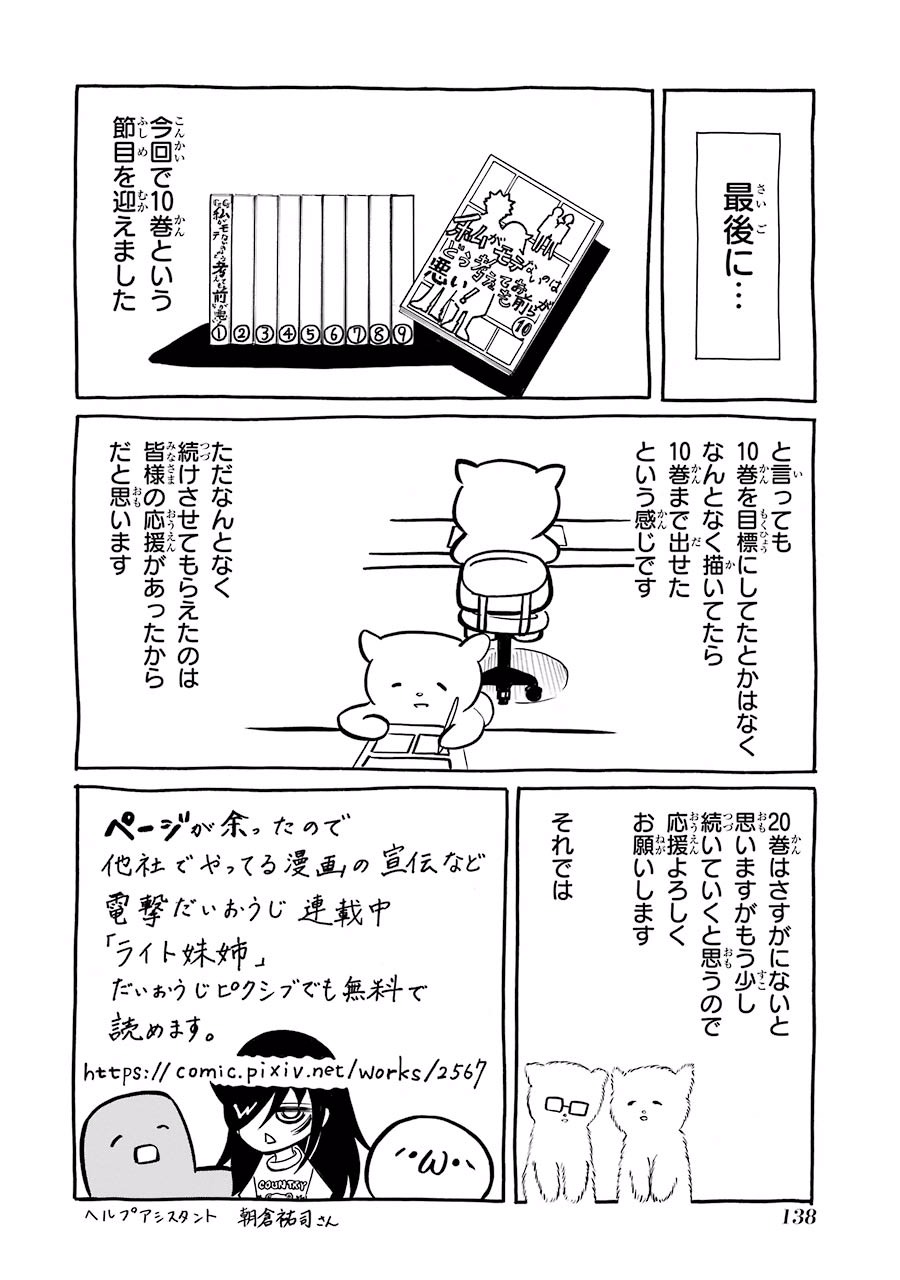 最後に…
今回で10巻という
節目を迎えました
私がモテないのはどう考えてもお前らが悪い!
①②③④⑤⑥⑦⑧⑨
私がモテないのは
どう考えてもお前らが
悪い!
⑩
と言っても
10巻を目標にしてたとかはなく
なんとなく描いてたら
10巻まで出せた
という感じです
ただなんとなく
続けさせてもらえたのは
皆様の応援があったから
だと思います
20巻はさすがにないと
思いますがもう少し
続いていくと思うので
応援よろしく
お願いします
それでは
ページが余ったので
他社でやってる漫画の宣伝など
電撃だいおうじ 連載中
「ライト姉妹」
だいおうじピクシブでも無料で
読めます。
https://comic.pixiv.net/works/2567
COUNTRY
ヘルプアシスタント 朝倉祐司さん
138